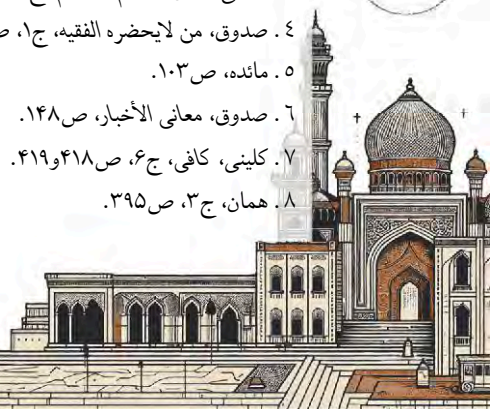 ٤ . صدوق، من لایحضره الفقیه، ج۱،
٥ . مائده، ص۱۰۳.
٦ . صدوق، معانی الأخبار، ص۱۴۸.
٧ . کلینی، کافی، ج۶، ص۴۱۸و۴۱۹.
٨ . همان، ج۳، ص۳۹۵.